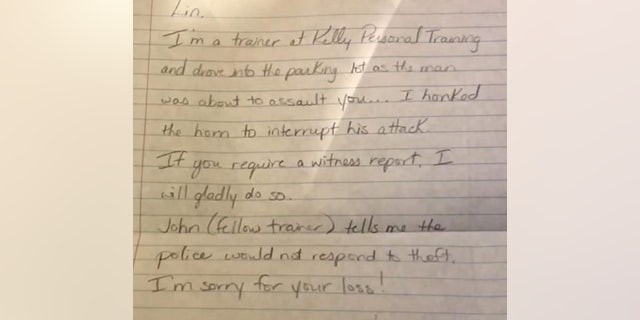 Lin,
I'm a trainer at Kelly Personal Training
and drove into the parking lot as the man
was about to assault you... I honked
the horn to interrupt his attack.
If you require a witness report, I
will gladly do so.
John (fellow trainer) tells me the
police would not respond to theft.
I'm sorry for your loss!